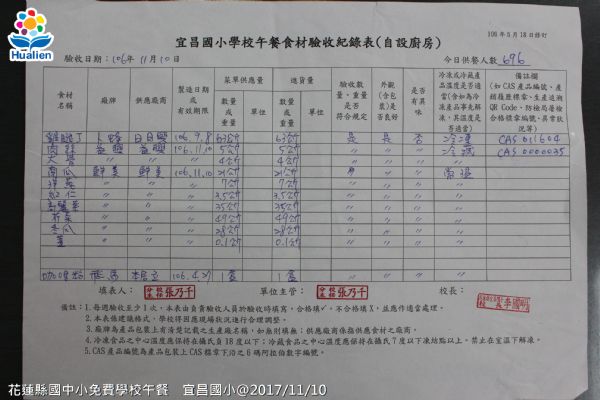 Hualien
106年5月18日修訂
宜昌國小學校午餐食材驗收紀錄表(自設廚房)
驗收日期：106年11月10日 今日供餐人數 696
食材名稱 廠牌 供應廠商 製造日期或有效期限 菜單供應量 進貨量 驗收數量、重量是否符合規定 外觀(含包裝)是否良好 是否有異味 冷凍或冷藏產品溫度是否適當(含如為冷凍產品事先解凍，其溫度是否適當) 備註欄(如CAS產品編號、產銷履歷標章、生產追溯QR Code、防檢局屠檢合格標章編號、異常狀況等)
數量或重量 單位 數量或重量 單位
106.9.8 63公斤 63公斤 是 是 否 冷凍 CAS 011604
肉絲 益興 益興 106.11.10 5公斤 5公斤 〃 〃 〃 冷藏 CAS 0000035
大骨 〃 〃 〃 4公斤 4公斤 〃 〃 〃 〃
南瓜 106.11.10 21公斤 21公斤 〃 〃 〃 常溫
〃 〃 〃 7公斤 7公斤 〃 〃 〃 〃
〃 〃 〃 3.5公斤 3.5公斤 〃 〃 〃 〃
高麗菜 〃 〃 〃 35公斤 35公斤 〃 〃 〃 〃
〃 〃 〃 49公斤 49公斤 〃 〃 〃 〃
冬瓜 〃 〃 〃 28公斤 28公斤 〃 〃 〃 〃
薑 〃 〃 〃 0.1公斤 0.1公斤 〃 〃 〃 〃
咖哩粉 106.4.27 1盒 1盒 〃 〃 〃 〃
填表人： 張乃千 單位主管： 張乃千 校長：
備註：1.每週驗收至少1次，本表由負責驗收人員於驗收時填寫，合格填ˇ，不合格填X，並應作適當處理。
2.本表僅建議格式，學校得因應現場狀況進行合理調整。
3.廠牌為產品包裝上有清楚記載之生產廠名稱，如無則填無；供應廠商係指供應食材之廠商。
4.冷凍食品之中心溫度應保持在攝氏負18度以下；冷藏食品之中心溫度應保持在攝氏7度以下凍結點以上，禁止在室溫下解凍。
5.CAS產品編號為產品包裝上CAS標章下沿之6碼阿拉伯數字編號。
花蓮縣國中小免費學校午餐 宜昌國小@2017/11/10